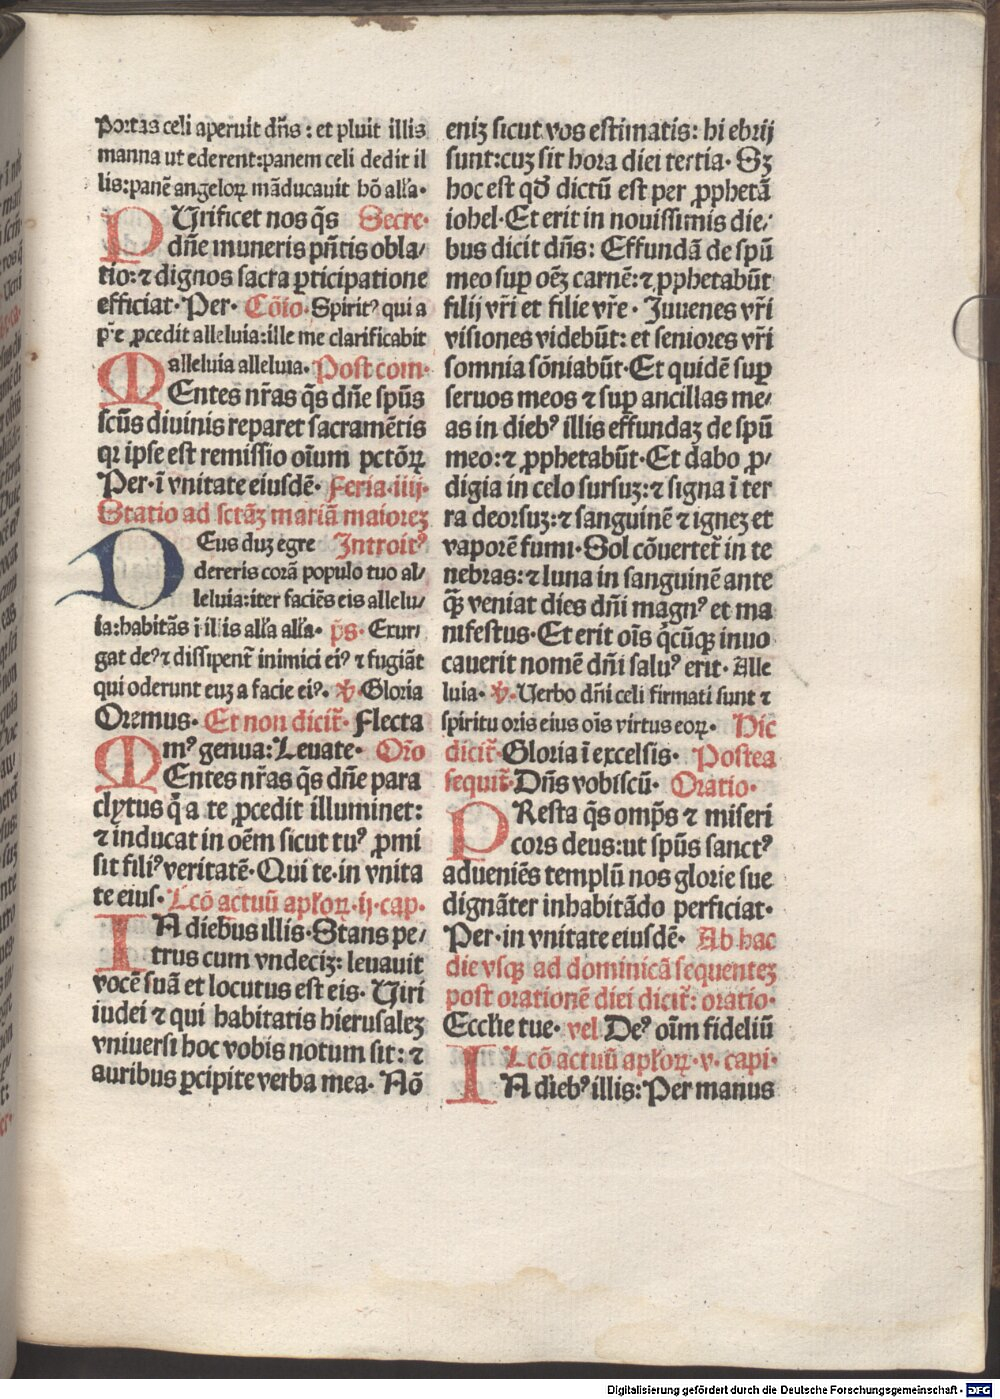 portas celi aperuit dñs : et pluit illis
manna ut ederent:panem celi dedit il
lis:panē angeloꝝ māducauit hō alľa·
PUrificet nos q̄s Secre·
dñe muneris pñtis obla-
tio:⁊ dignos sacra ꝑticipatione
efficiat·Per· Cōio·Spiritꝰ qui a
pr̄e ꝓcedit alleluia:ille me clarificabit
alleluia alleluia· Post com·
MEntes nr̄as q̄s dñe spūs
scūs diuinis reparet sacramētis
qꝛ ipse est remissio oīum pctōꝝ
Per·ī vnitate eiusdē· Feria·iiij·
Statio ad sctāʒ mariā maioreʒ
DEus duʒ egre Introitꝰ
dereris corā populo tuo al/
leluia:iter faciēs eis allelu/
ia:habitās ī illis alľa alľa· p̄s· Exur/
gat deꝰ ⁊ dissipent̄ inimici eiꝰ ⁊ fugiāt
qui oderunt euʒ a facie eiꝰ· ℣· Gloria
Oremus· Et non dicit̄· Flecta
mꝰ genua:Leuate· Orō
MEntes nr̄as q̄s dñe para
clytus q̄ a te ꝓcedit illuminet:
⁊ inducat in oēm sicut tuꝰ ꝓmi
sit filiꝰ veritatē·Qui te·in vnita
te eius· Lcō actuū apľoꝝ·ij·cap·
IN diebus illis·Stans pe/
trus cum vndeciʒ: leuauit
vocē suā et locutus est eis· Uiri
iudei ⁊ qui habitatis hierusaleʒ
vniuersi hoc vobis notum sit: ⁊
auribus ꝑcipite verba mea· Nō
eniʒ sicut vos estimatis: hi ebrij
sunt:cuʒ sit hora diei tertia· Sʒ
hoc est qđ dictū est per ꝓphetā
iohel·Et erit in nouissimis die/
bus dicit dñs: Effundā de spū
meo suꝑ oēʒ carnē:⁊ ꝓphetabūt
filij vr̄i et filie vr̄e· Juuenes vr̄i
visiones videbūt: et seniores vr̄i
somnia sōniabūt·Et quidē suꝑ
seruos meos ⁊ suꝑ ancillas me/
as in diebꝰ illis effundaʒ de spū
meo:⁊ ꝓphetabūt·Et dabo ꝓ/
digia in celo sursuʒ:⁊ signa ī ter
ra deorsuʒ:⁊ sanguinē ⁊ igneʒ et
vaporē fumi·Sol cōuertet̄ in te
nebras:⁊ luna in sanguinē ante
q̄ꝫ veniat dies dñi magnꝰ et ma
nifestus·Et erit oīs q̇cūqꝫ inuo
cauerit nomē dñi saluꝰ erit· Alle
luia· ℣· Uerbo dñi celi firmati sunt ⁊
spiritu oris eius oīs virtus eoꝝ· Hic
dicit̄·Gloria ī excelsis· Postea
sequit̄·Dñs vobiscū· Oratio·
PResta q̄s omp̄s ⁊ miseri
cors deus:ut spūs sanctꝰ
adueniēs templū nos glorie sue
dignāter inhabitādo perficiat·
Per·in vnitate eiusdē· Ab hac
die vsqꝫ ad dominicā sequenteʒ
post orationē diei dicit̄: oratio·
Eccľie tue· vel Deꝰ oīm fideliū
Lcō actuū apľoꝝ·v·capi·
IN diebꝰ illis: Per manus
Digitalisierung gefördert durch die Deutsche Forschungsgemeinschaft - DFG